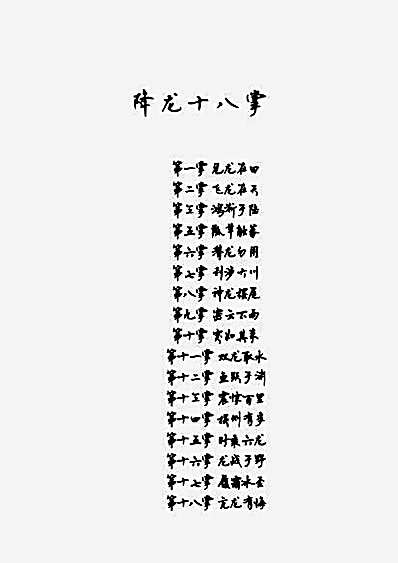 降龙十八掌
第一掌 见龙在田
第二掌 飞龙在天
第三掌 鸿渐于陆
第五掌 羝羊触藩
第六掌 潜龙勿用
第七掌 利涉大川
第八掌 神龙摆尾
第九掌 密云不雨
第十掌 突如其来
第十一掌 双龙取水
第十二掌 鱼跃于渊
第十三掌 震惊百里
第十四掌 损则有孚
第十五掌 时乘六龙
第十六掌 龙战于野
第十七掌 履霜冰至
第十八掌 亢龙有悔